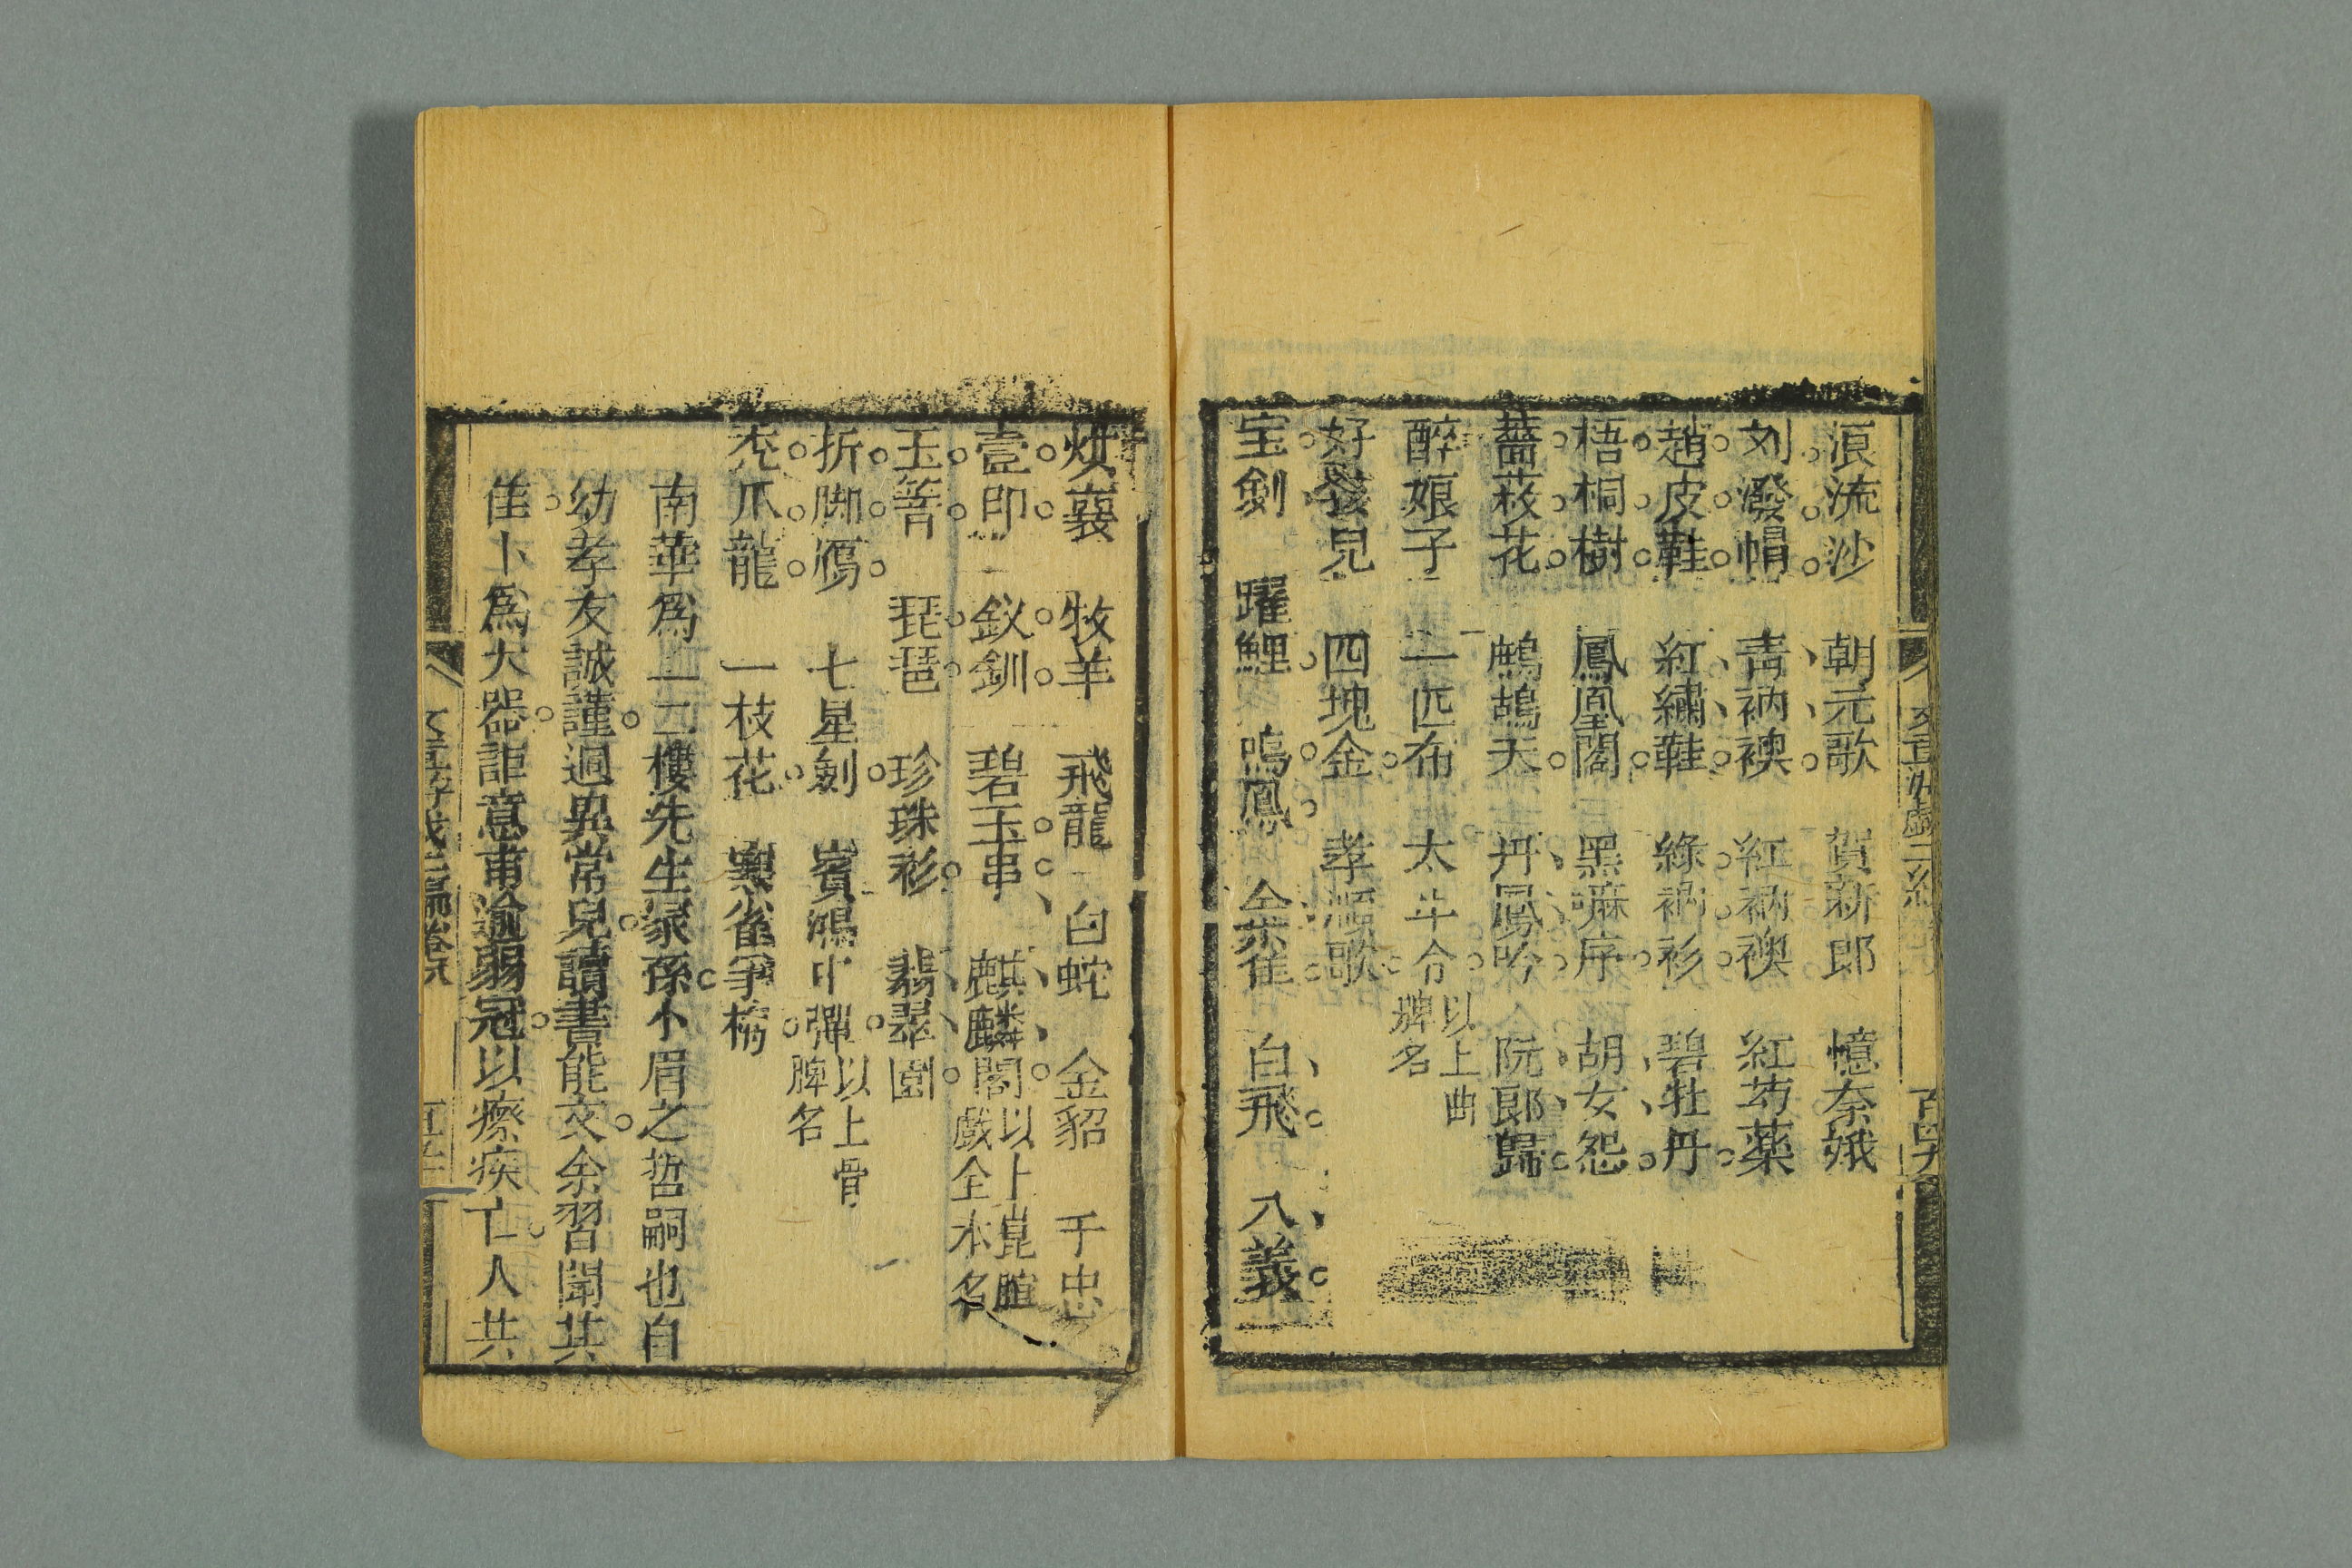 浪流沙　朝元歌　賀新郎　憶秦娥
刘潑帽　青衲襖　紅衲襖　紅芍薬
趙皮鞋　紅繡鞋　綠衲衫　碧牡丹
梧桐樹　鳳凰閣　黑嘛序　胡女怨
薔薇花　鷓鴣天　丹鳳吟　阮郎歸
醉娘子　一匹布　太斗令　以上曲
牌名
好孩兒　四塊金　孝順歌
宝劍　躍鯉　鳴鳳　金雀　白飛　八義
牧羊　飛龍　白蛇　金貂　千忠
壹印　釵釧　碧玉串　麒麟閣　以上崑腔
戲全本名
玉簪　琵琶　珍珠衫　翡翠園
折脚鴈　七星劍　賓鴻中彈　以上骨
牌名
禿爪龍　一枝花　寒雀爭梅
南華為二樓先生家孫小眉之哲嗣也自
幼孝友誠謹迥異常兒讀書能文余習聞其
佳卜為大器詎意甫逾弱冠以瘵疾亡人共